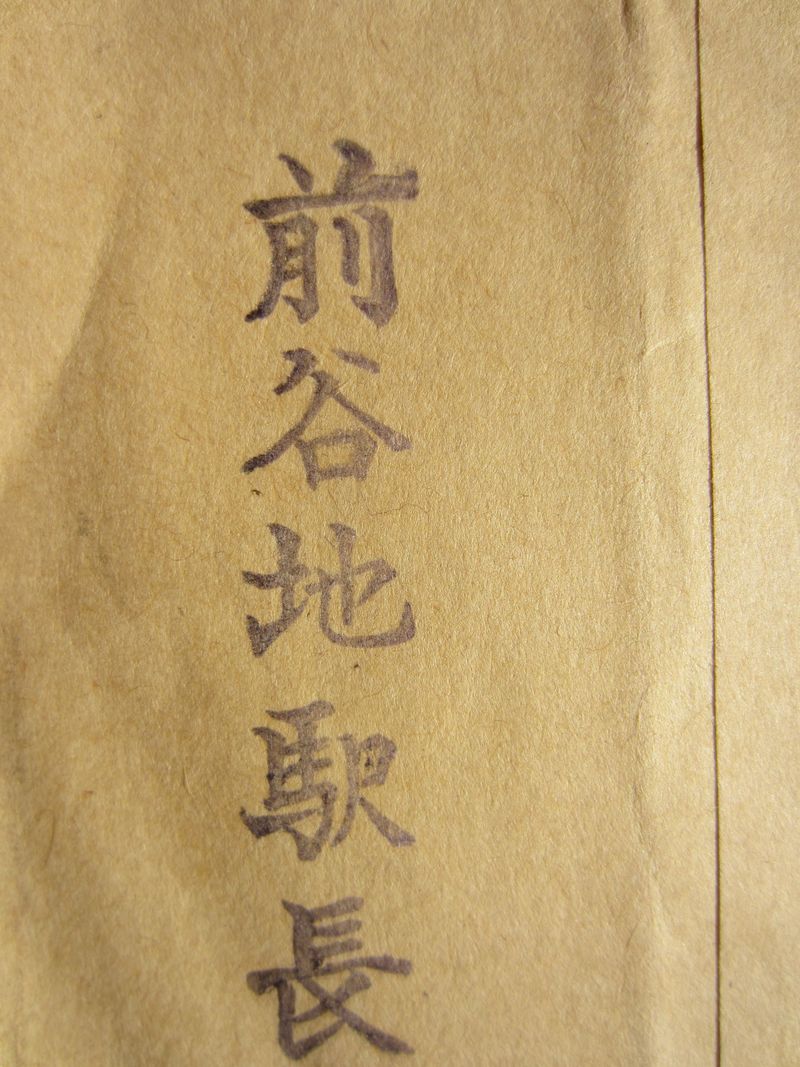 前谷地駅長